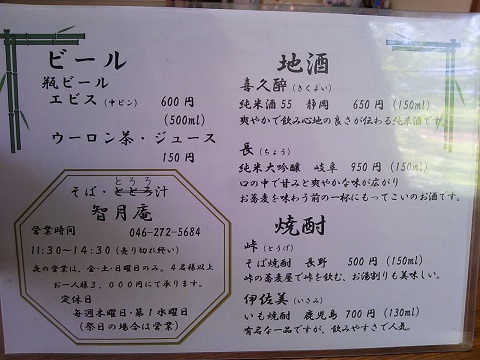 ビール
瓶ビール
エビス（中ビン） 600円
(500ml)
ウーロン茶・ジュース
150円
とろろ
そば・とろろ汁
智月庵
営業時間 046-272-5684
11:30～14:30（売り切れ終い）
夜の営業は、金・土・日曜日のみ。4名様以上
お一人様3,000円にて承ります。
定休日
毎週木曜日・第1水曜日
（祭日の場合は営業）
地酒
喜久醉（きくよい）
純米酒55 静岡 650円 (150ml)
爽やかで飲み心地の良さが伝わる純米酒です。
長（ちょう）
純米大吟醸 岐阜 950円 (150ml)
口の中で甘みと爽やかな味が広がり
お蕎麦を味わう前の一杯にもってこいのお酒です。
焼酎
峠（とうげ）
そば焼酎 長野 500円 (150ml)
峠の蕎麦屋で峠を飲む、お湯割りも美味しい。
伊佐美（いさみ）
いも焼酎 鹿児島 700円 (130ml)
有名な一品ですが、飲みやすさで人気。